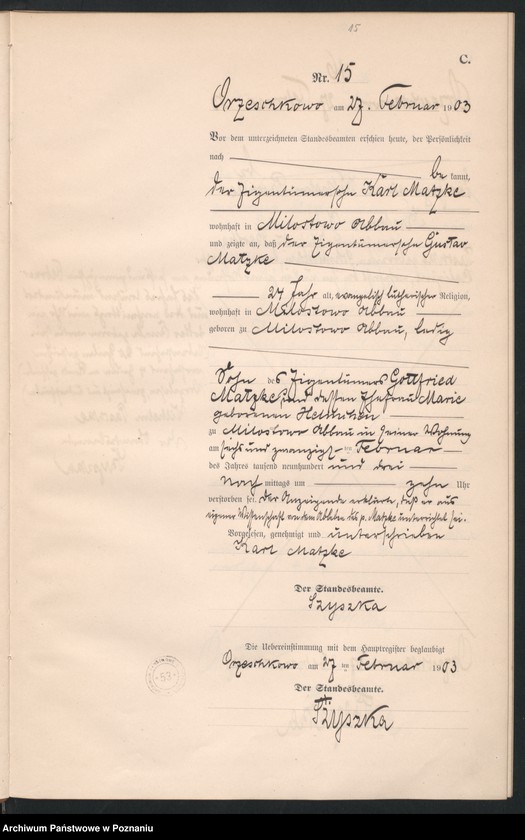 15
C.
Nr. 15
Orzeschkowo am 27. Februar 1903
Vor dem unterzeichneten Standesbeamten erschien heute, der Persönlichkeit
nach be kannt,
der Eigentümersohn Karl Matzke
wohnhaft in Milostowo Abbau
und zeigte an, daß der Eigentümersohn Gustav
Matzke
27 Jahr alt, evangelisch lutherischer Religion,
wohnhaft in Milostowo Abbau
geboren zu Milostowo Abbau, ledig
Sohn des Eigentümers Gottfried
Matzke und dessen Ehefrau Marie
geborenen
zu Milostowo Abbau in seiner Wohnung
am sechs und zwanzigsten Februar
des Jahres tausend neunhundert und drei
nach mittags um zehn Uhr
verstorben sei. Der Anzeigende erklärte, daß er aus
eigener Wissenschaft von dem Ableben des p. Matzke unterrichtet sei.
Vorgelesen, genehmigt und unterschrieben
Karl Matzke
Der Standesbeamte.
Szyszka
Die Uebereinstimmung mit dem Hauptregister beglaubigt
Orzeschkowo am 27 ten Februar 1903
Der Standesbeamte.
Szyszka
53
Archiwum Państwowe w Poznaniu